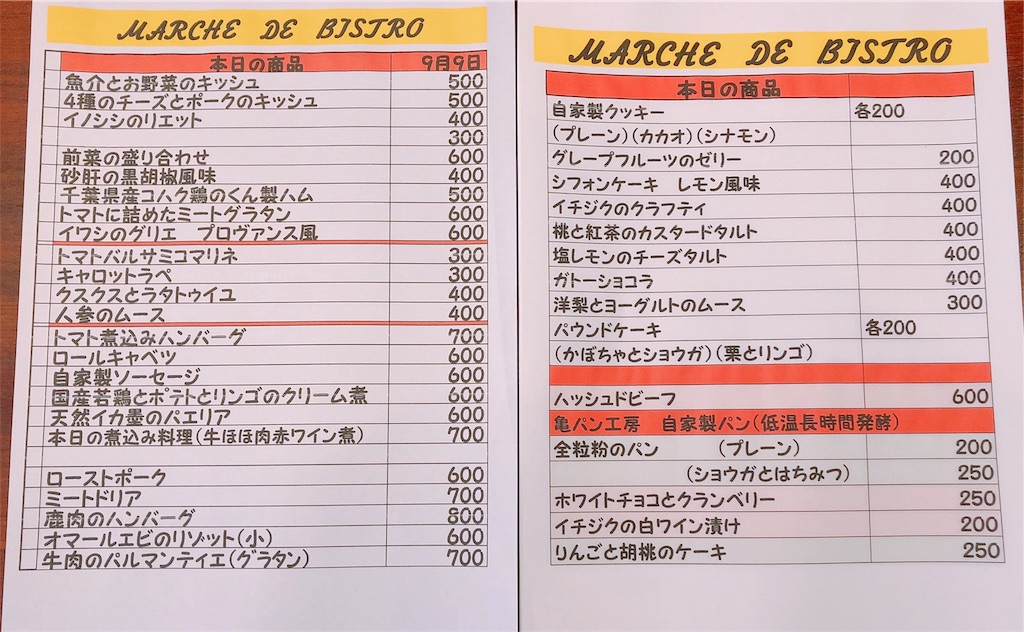 MARCHE DE BISTRO
本日の商品 9月9日
魚介とお野菜のキッシュ 500
4種のチーズとポークのキッシュ 500
イノシシのリエット 400
300
前菜の盛り合わせ 600
砂肝の黒胡椒風味 400
千葉県産コハク鶏のくん製ハム 500
トマトに詰めたミートグラタン 600
イワシのグリエ プロヴァンス風 600
トマトバルサミコマリネ 300
キャロットラペ 300
クスクスとラタトゥイユ 400
人参のムース 400
トマト煮込みハンバーグ 700
ロールキャベツ 600
自家製ソーセージ 600
国産若鶏とポテトとリンゴのクリーム煮 600
天然イカ墨のパエリア 600
本日の煮込み料理(牛ほほ肉赤ワイン煮) 700
ローストポーク 600
ミートドリア 700
鹿肉のハンバーグ 800
オマールエビのリゾット(小) 600
牛肉のパルマンティエ(グラタン) 700
MARCHE DE BISTRO
本日の商品
自家製クッキー 各200
(プレーン)(カカオ)(シナモン)
グレープフルーツのゼリー 200
シフォンケーキ レモン風味 400
イチジクのクラフティ 400
桃と紅茶のカスタードタルト 400
塩レモンのチーズタルト 400
ガトーショコラ 400
洋梨とヨーグルトのムース 300
パウンドケーキ 各200
(かぼちゃとショウガ)(栗とリンゴ)
ハッシュドビーフ 600
亀パン工房 自家製パン(低温長時間発酵)
全粒粉のパン (プレーン) 200
(ショウガとはちみつ) 250
ホワイトチョコとクランベリー 250
イチジクの白ワイン漬け 200
りんごと胡桃のケーキ 250